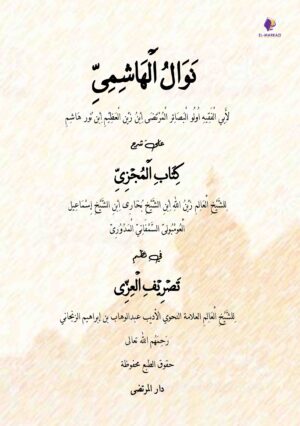 EL-MARKAZI
نَوَالُ الْهَاشِمِيِّ
لِأَبِي الْفَقِيهِ أُولُو الْبَصَائِرِ الْمُرْتَضَى إِبْنُ زَيْنِ الْعَظِيْمِ اِبْنِ نُور هَاشِم
على شرح
كِتَابِ الْمُجْزِيْ
لِلشَّيْخِ الْعَالِمِ زَيْنُ اللهِ اِبْنِ الشَّيْخِ بُخَارِى اِبْنِ الشَّيْخِ إِسْمَاعِيل
السُّمَّانِيِّ الْمَدُوْرِيّ
في نظم
تَصْرِيْفِ الْعِزِّى
لِلشَّيْخِ الْعَالِمِ العلامة النحوي الأديب عبدالوهاب بن إبراهيم الزنجاني
رَحِمَهُم الله تعالى
حقوق الطبع محفوظة
دار المرتضى